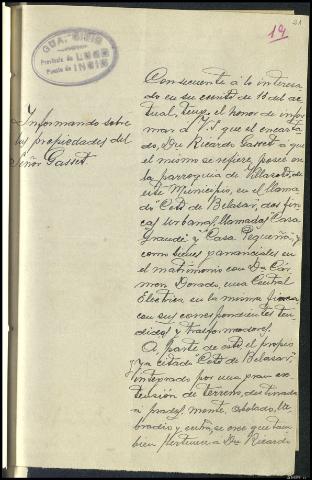 21
19
GUARDIA CIVIL
Provincia de LUGO
Puesto de INCIO
Informando sobre
las propiedades del
Señor Gasset.
Consecuente á lo interesa
do en su escrito de 13 del ac
tual, tengo el honor de infor
mar á V.S. que el encarta
do, Dn Ricardo Gasset á que
el mismo se refiere, posee en
la parroquia de Villarote, de
este Municipio, en el llama
do "Coto de Belasar", dos fin
cas urbanas, llamadas "Casa
Grande" y "Casa Pequeña", y
como bienes gananciales en
el matrimonio con Dª Cár
men Dorado, una Central
Electrica en la misma finca,
con sus correspondientes ten
didos y trasformadores.
A parte de esto, el propio
y ya citado "Coto de Belasar",
integrado por una gran ex
tensión de terreno, destinada
á prados, monte, arbolado, la
bradio y, se cree que tam
bien pertenece á Dn Ricardo